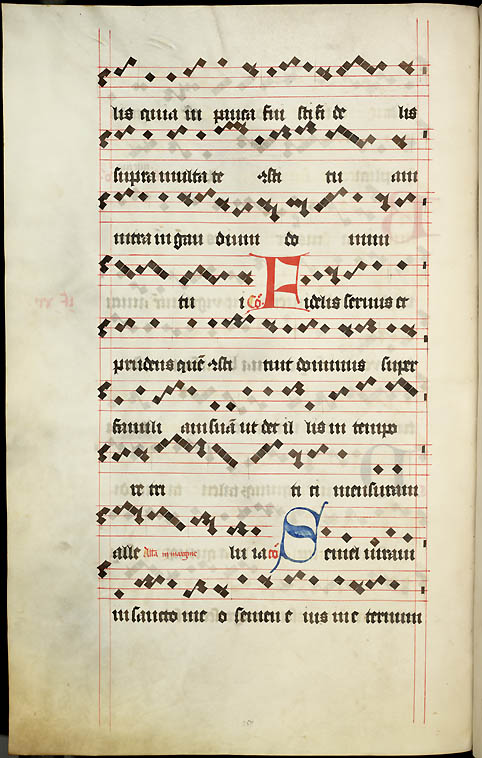 lis quia in pauca fui sti fi de lis
supra multa te sti tu am
intra in gau dium do mini
tu i Cō. Fidelis servus et
prudens quē sti tuit dominus super
famili am suā ut det il lis in tempo
re tri ti ci mensuram
alle Alia in margine lu ia cō Semel iuravi
in sancto me o semen e ius in e ternum